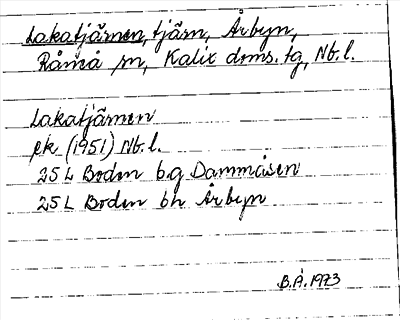 Lakatjärnen, tjärn, Årbyn,
Råneå sn, Kalix doms. tg, Nb. l.
Lakatjärnen
ek (1951) Nb. l.
25 L Boden bg Dammåsen
25 L Boden bh Årbyn
B.Å. 1973